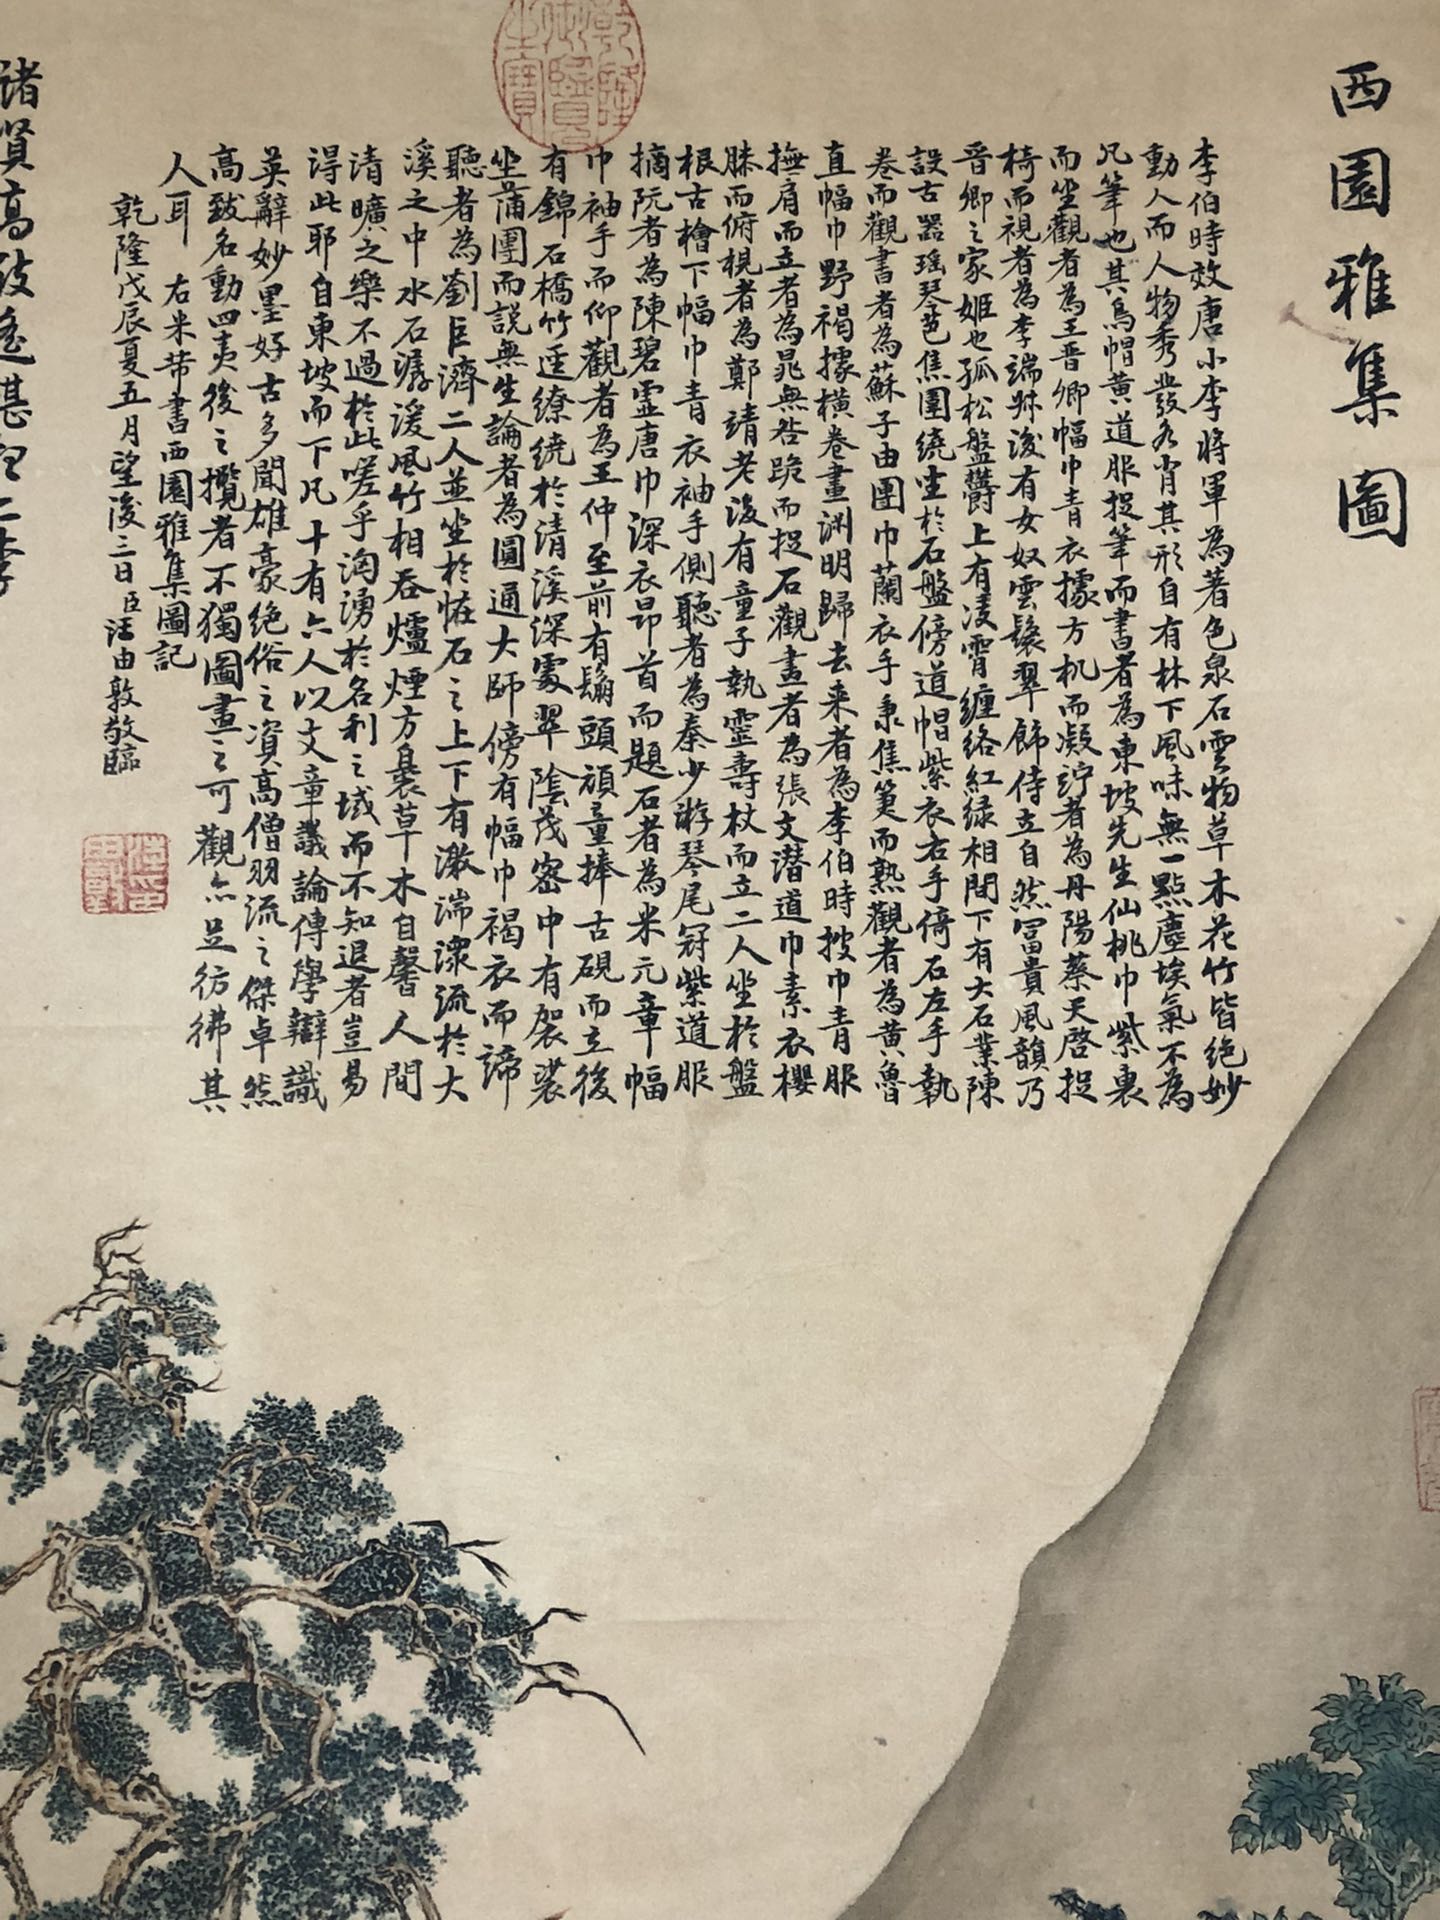 西園雅集圖
李伯時效唐小李將軍為著色泉石雲物草木花竹皆絕妙
動人而人物秀發各肖其形自有林下風味無一點塵埃氣不為
凡筆也其烏帽黃道服捉筆而書者為東坡先生仙桃巾紫裘
而坐觀者為王晉卿幅巾青衣據方机而凝竚者為丹陽蔡天啓捉
椅而視者為李端叔後有女奴雲鬟翠飾侍立自然富貴風韻乃
晉卿之家姬也孤松盤鬱上有淩霄纏絡紅綠相間下有大石案陳
設古器瑤琴芭蕉圍繞坐於石盤傍道帽紫衣右手倚石左手執
卷而觀書者為蘇子由團巾蘭衣手秉焦箑而熟觀者為黃魯
直幅巾野褐據橫卷畫淵明歸去來者為李伯時披巾青服
撫肩而立者為晁無咎跪而捉石觀畫者為張文潛道巾素衣櫻
膝而俯視者為鄭靖老後有童子執靈壽杖而立二人坐於盤
根古檜下幅巾青衣袖手側聽者為秦少游琴尾冠紫道服
摘阮者為陳碧靈唐巾深衣昂首而題石者為米元章幅
巾袖手而仰觀者為王仲至前有鬅頭頑童捧古硯而立後
有錦石橋竹逕繚繞於清溪深處翠陰茂密中有袈裟
坐蒲團而說無生論者為圓通大師傍有幅巾褐衣而諦
聽者為劉巨濟二人並坐於怪石之上下有激湍潨流於大
溪之中水石潺湲風竹相吞爐煙方裊草木自馨人間
清曠之樂不過於此嗟乎洶湧於名利之域而不知退者豈易
得此耶自東坡而下凡十有六人以文章議論博學辯識
英辭妙墨好古多聞雄豪絕俗之資高僧羽流之傑卓然
高致名動四夷後之攬者不獨圖畫之可觀亦足彷彿其
人耳 右米芾書西園雅集圖記
乾隆戊辰夏五月望後三日臣汪由敦敬臨
乾隆御覽之寶
諸賢高致